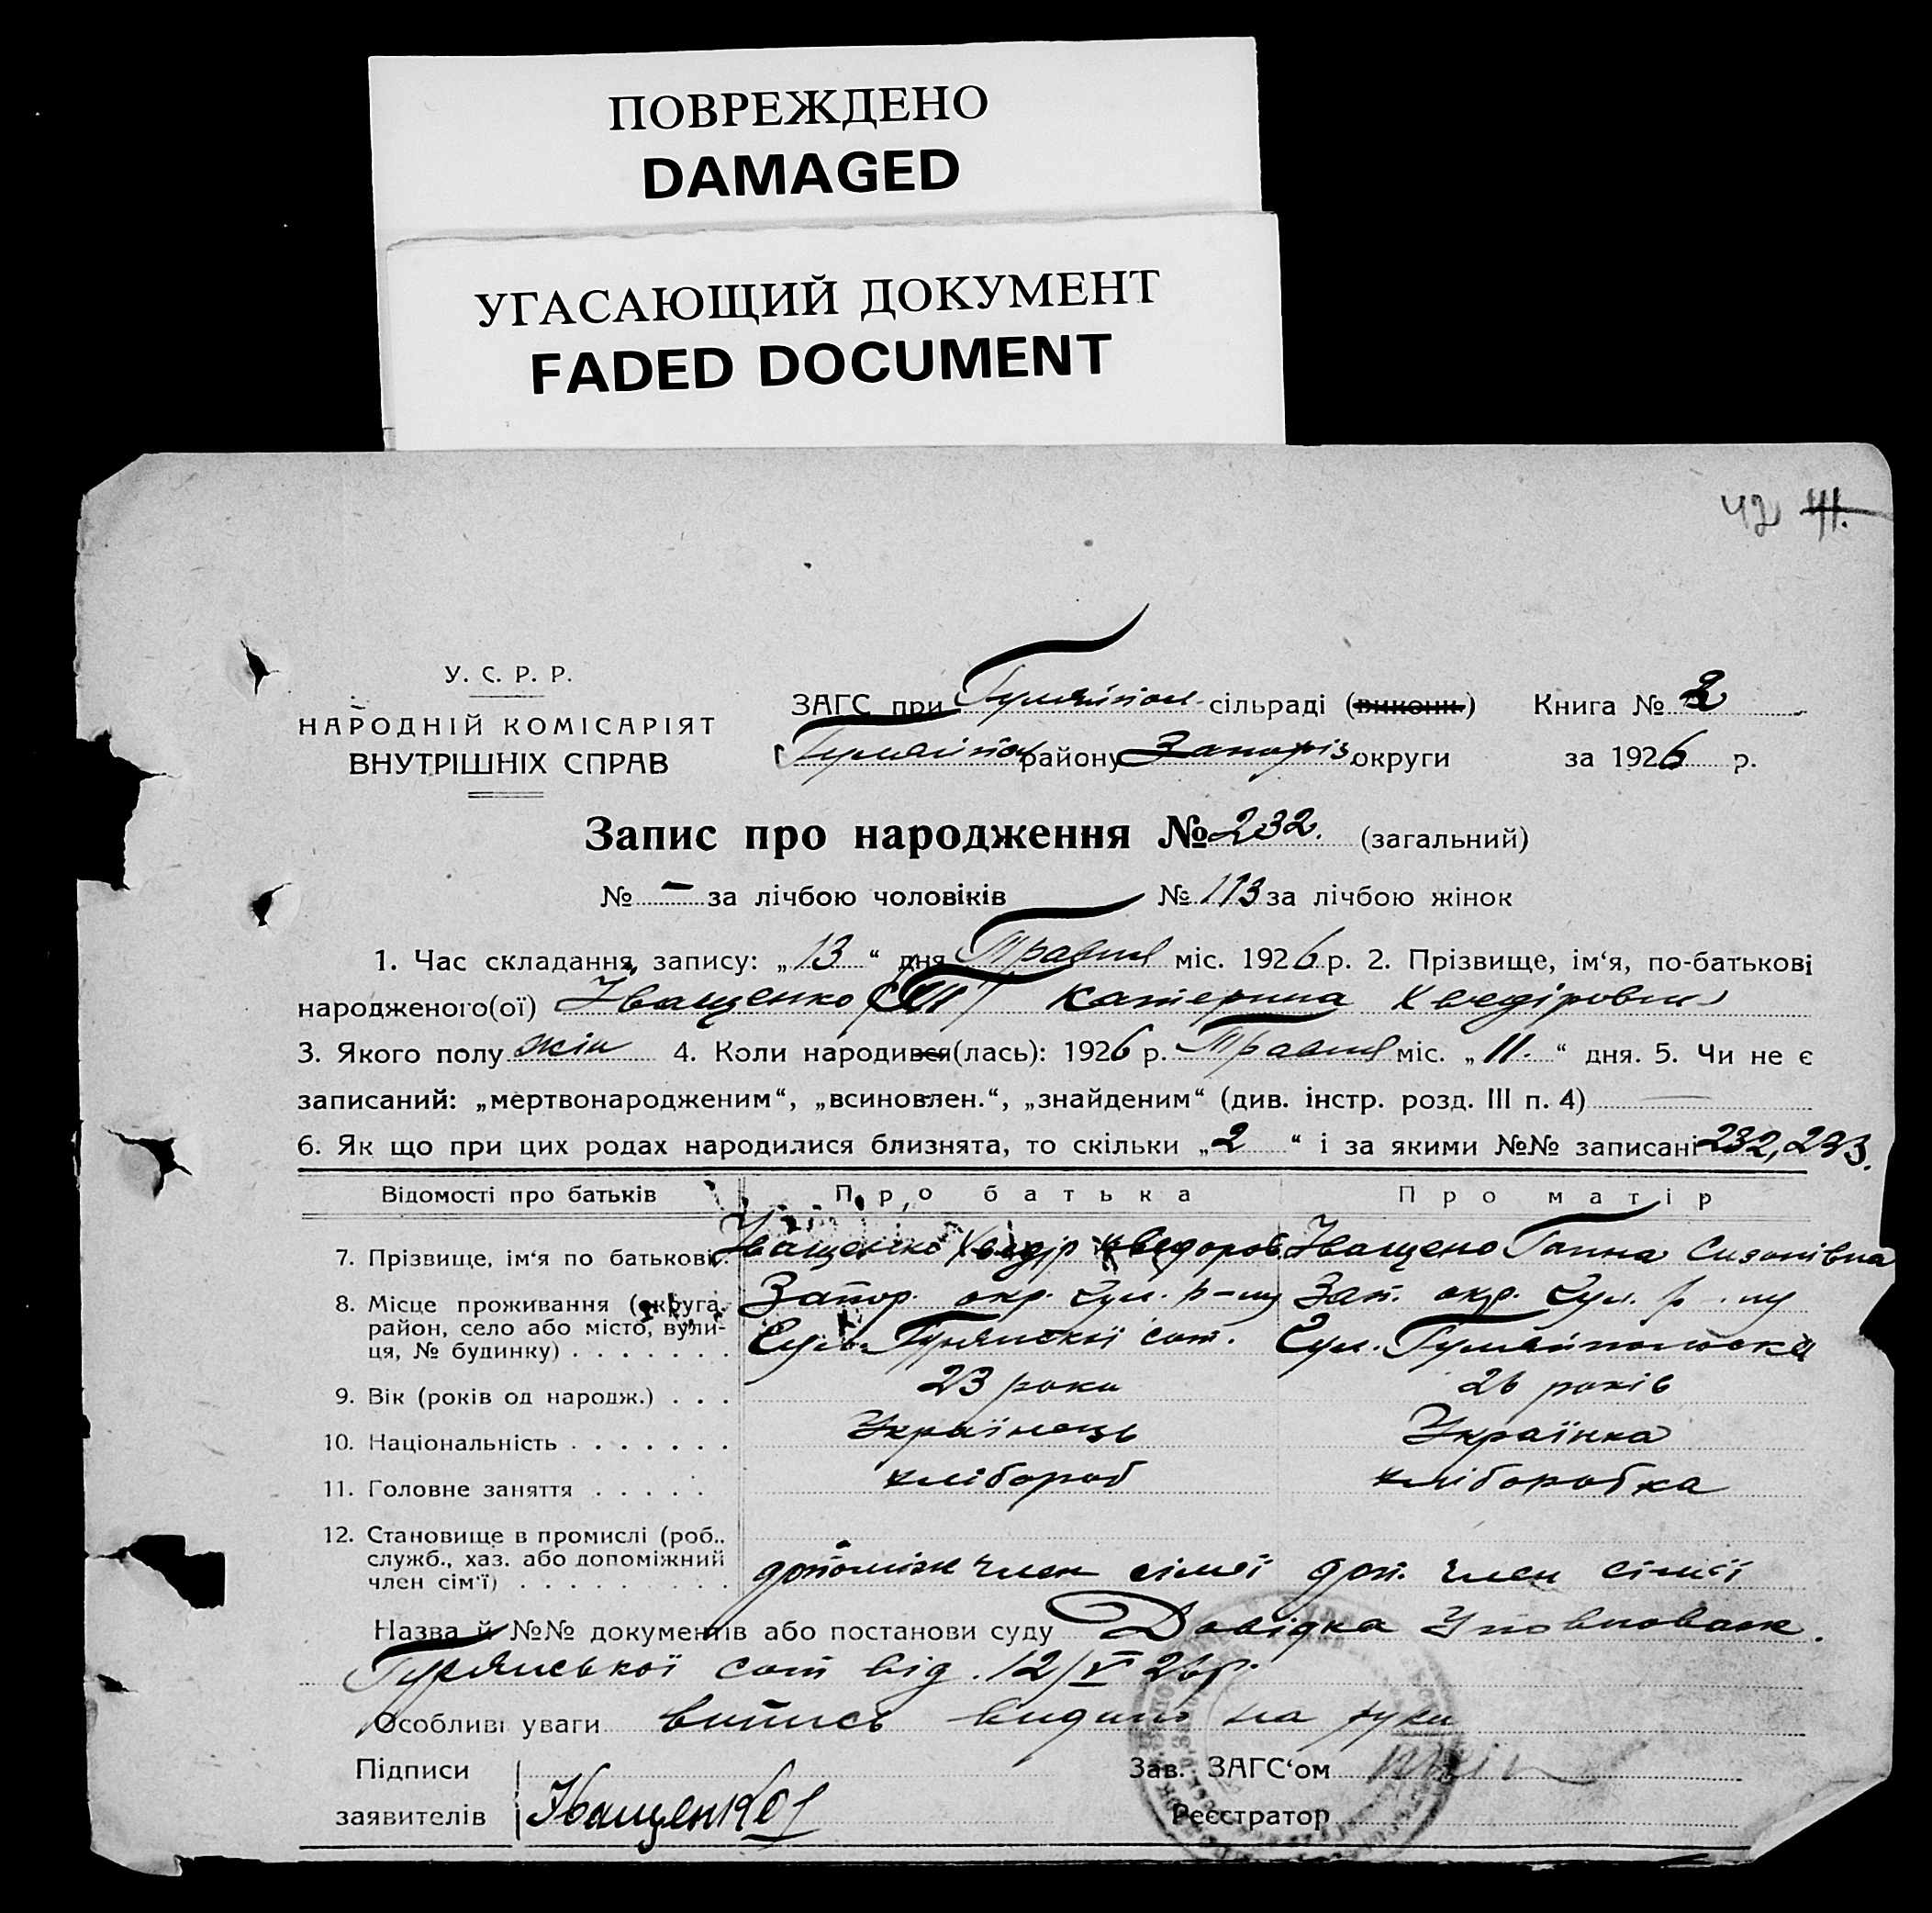 ПОВРЕЖДЕНО
DAMAGED
УГАСАЮЩИЙ ДОКУМЕНТ
FADED DOCUMENT
42 41.
У. С. Р. Р.
НАРОДНІЙ КОМІСАРІЯТ
ВНУТРІШНІХ СПРАВ
ЗАГС при Гуляйпол. сільраді (виконк.) Книга № 2
Гуляйпол району Запоріз. округи за 1926 р.
Запис про народження № 232. (загальний)
№ – за лічбою чоловіків № 113 за лічбою жінок
1. Час складання запису: „13“ дня Травня міс. 1926 р. 2. Прізвище, ім‘я, по-батькові
народженого(ої) Іващенко Катерина Хведіровна
3. Якого полу жін 4. Коли народився(лась): 1926 р. Травня міс. „11.“ дня. 5. Чи не є
записаний: „мертвонародженим“, „всиновлен.“, „знайденим“ (див. інстр. розд. III п. 4) —
6. Як що при цих родах народилися близнята, то скільки „2“ і за якими №№ записані 232, 233.
Відомості про батьків Про батька Про матір
7. Прізвище, ім‘я по батькові. Іващенко Хведір Хведоров. Іващено Ганна Сизонівна
8. Місце проживання (округа, Запор. окр. Гул. р-ну Зап. окр. Гул. р-ну
район, село або місто, вули-
ця, № будинку) . . . . . . . Гурянської сот. Гул. Гуляйпольська
9. Вік (років од народж.) . . . 23 роки 26 років
10. Національність . . . . . . . Українець Українка
11. Головне заняття . . . . . хлібороб хліборобка
12. Становище в промислі (роб.,
служб., хаз. або допоміжний
член сім‘ї) . . . . . . . . . допоміж член сімєї доп. член сімєї
Назва й №№ документів або постанови суду Довідка Уповноваж.
Гурянської сот від. 12/V 26р.
Особливі уваги випись видано на руки
Підписи Зав. ЗАГС‘ом
заявителів Іващенко Реєстратор